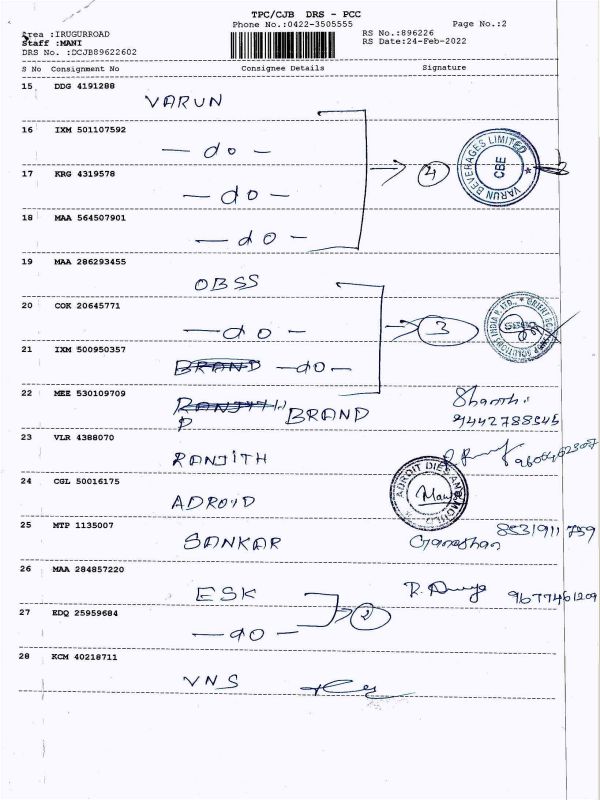 TPC/CJB DRS - PCC
Phone No.:0422-3505555 Page No.:2
Area :IRUGURROAD RS No.:896226
Staff :MANI RS Date:24-Feb-2022
DRS No. :DCJB89622602
S No Consignment No Consignee Details Signature
15 DDG 4191288
VARUN
16 IXM 501107592
— do —
17 KRG 4319578
— do —
4
VARUN BEVERAGES LIMITED
CBE
18 MAA 564507901
— do —
19 MAA 286293455
OBSS
20 COK 20645771
— do —
3
21 IXM 500950357
BRAND — do —
22 MEE 530109709
RANJITH BRAND
9442788345
23 VLR 4388070
RANJITH
24 CGL 50016175
ADROID
ADROIT DIES AND MOULD
25 MTP 1135007
SANKAR
8531911759
26 MAA 284857220
ESK
9677461209
27 EDQ 25959684
— do —
2
28 KCM 40218711
VNS